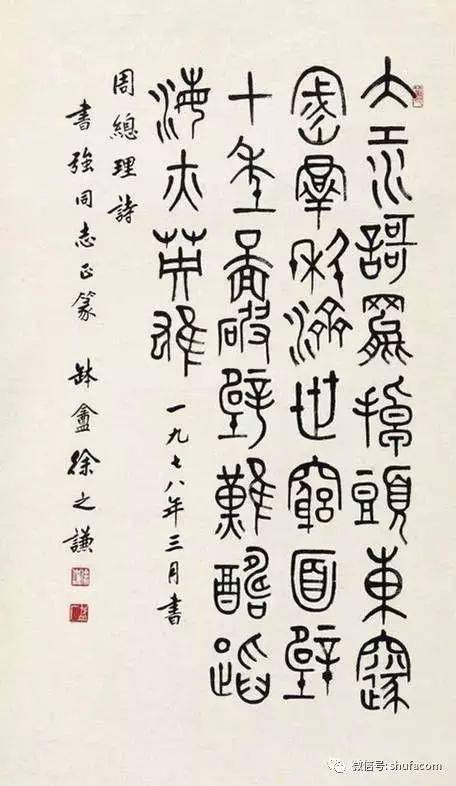 大江謌罷掉頭東邃
密羣科濟世窮面壁
十年圖破壁難酬蹈
海亦英雄 一九七八年三月書
周總理詩
書強同志正篆 缽盦徐之謙
微信号: shufacom